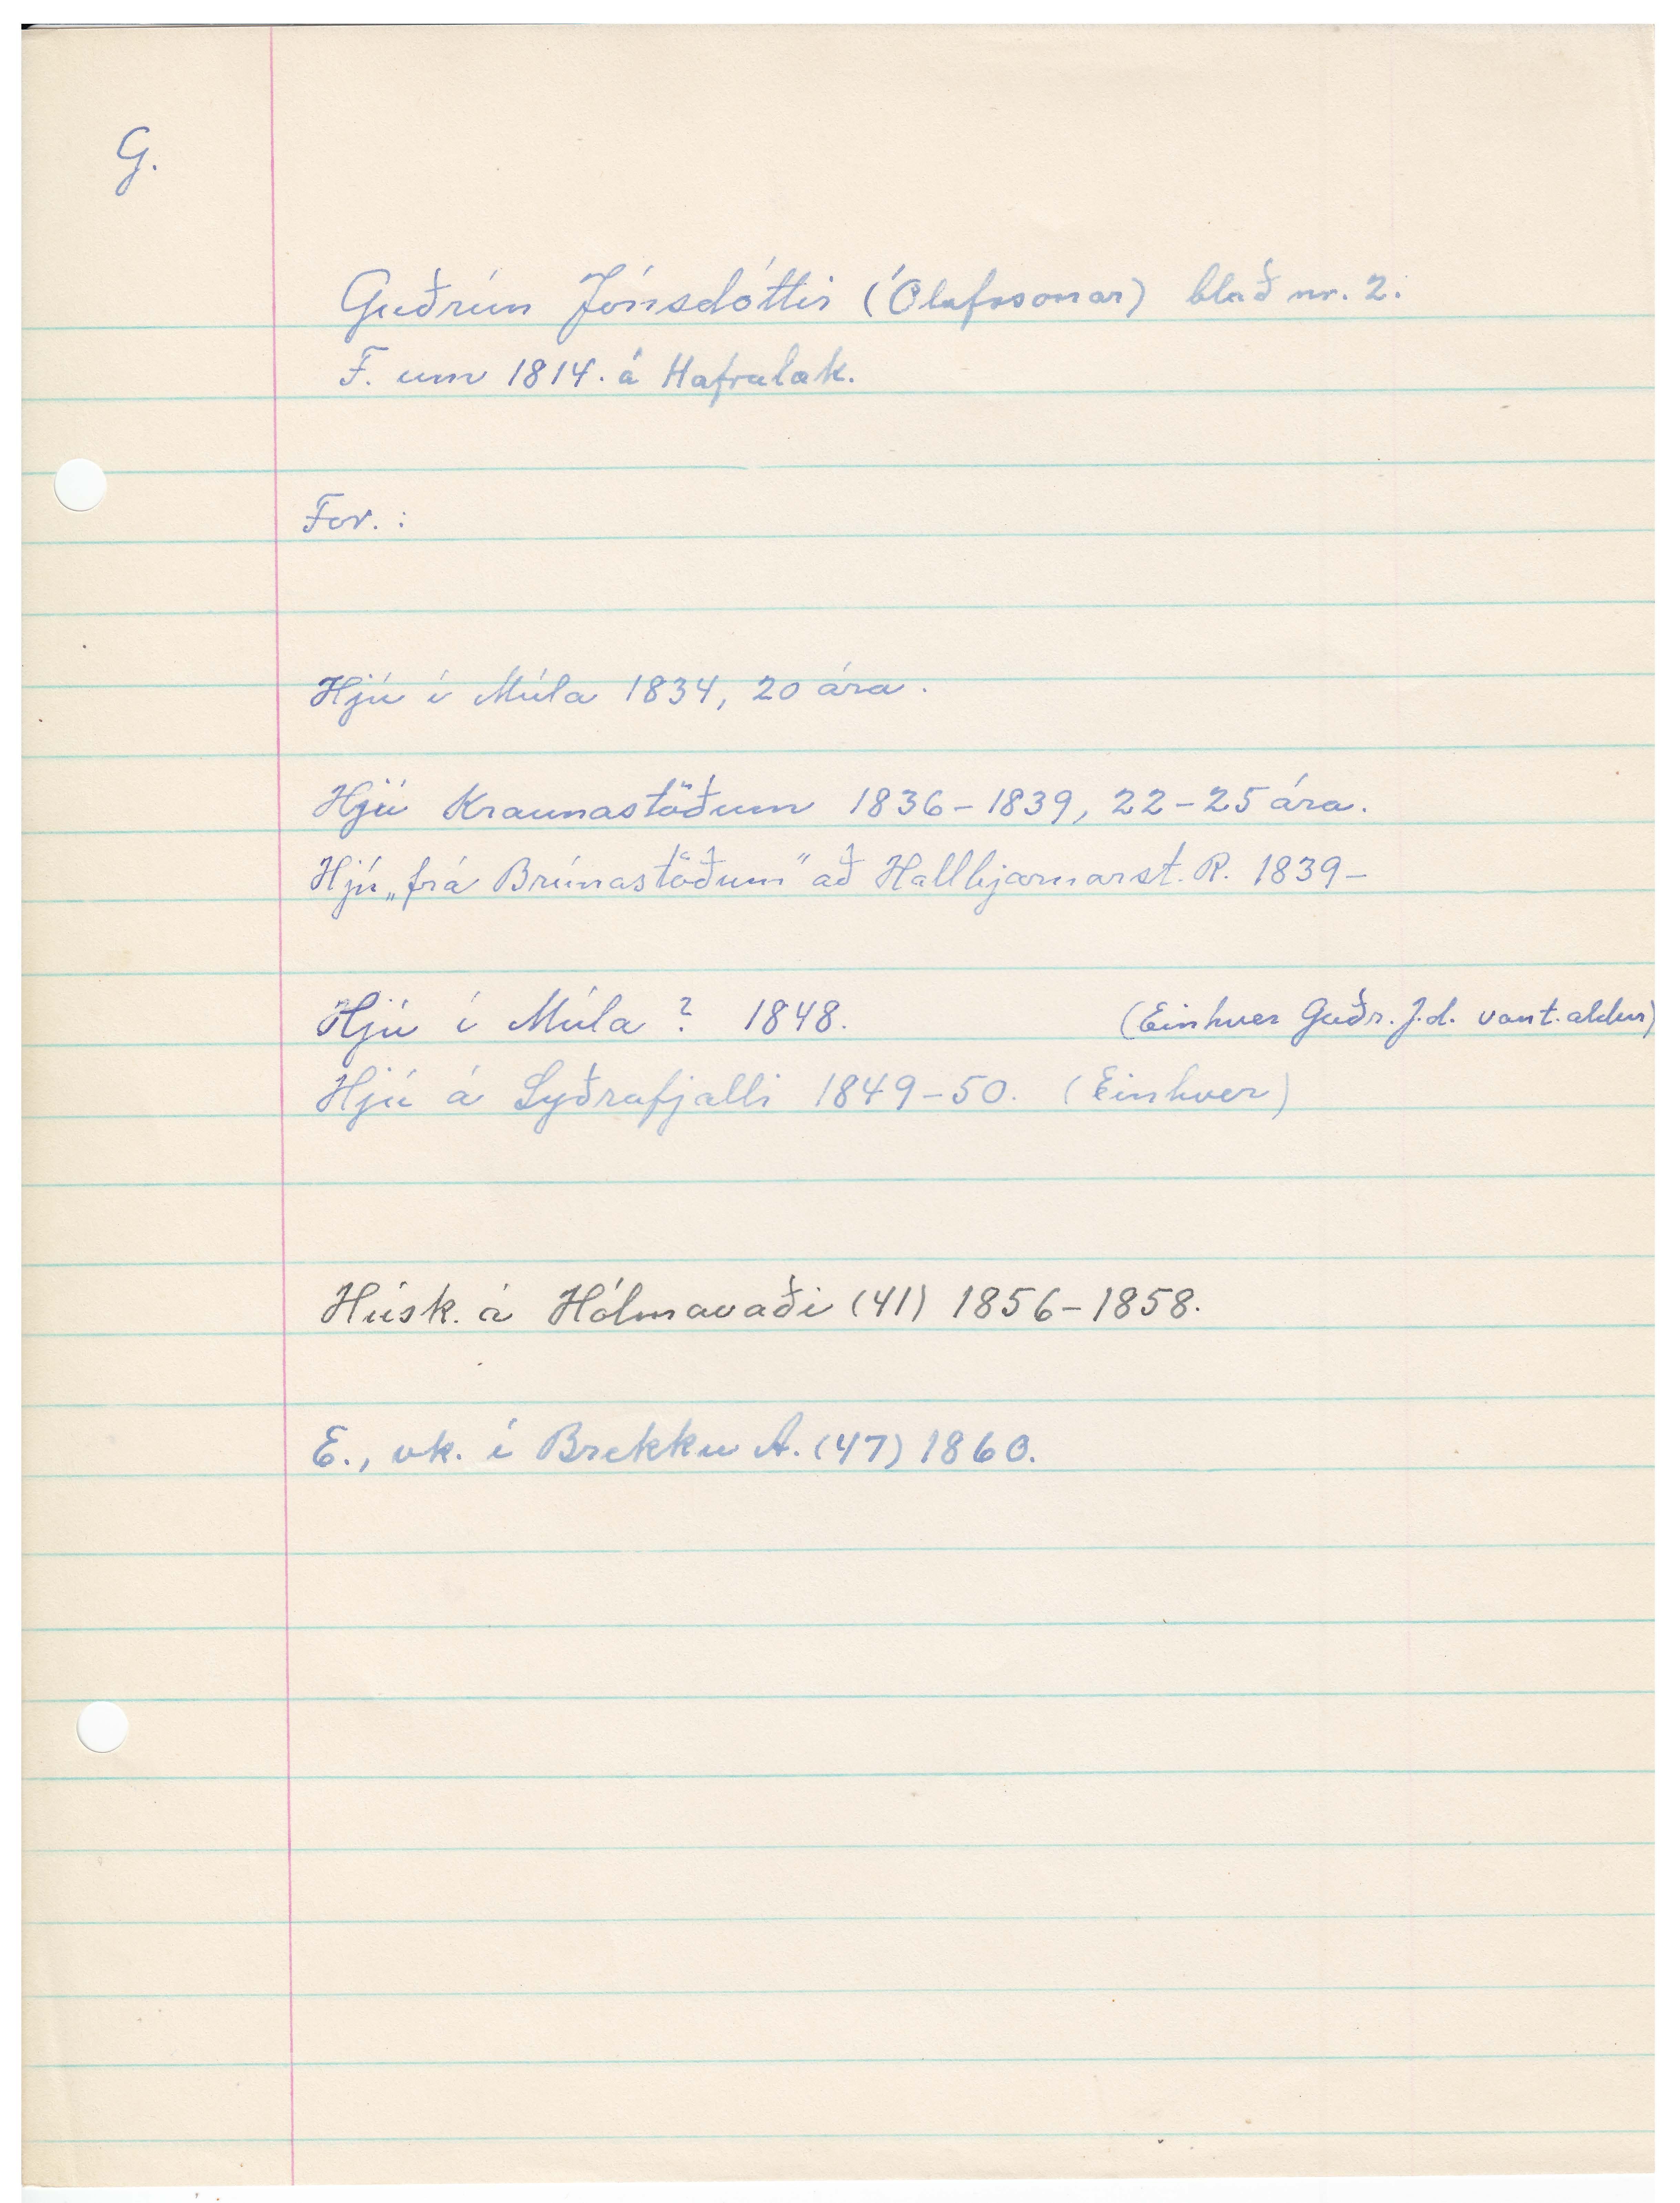 G.
Guðrún Jónsdóttir (Ólafssonar) blað nr. 2.
F. um 1814. á Hafralæk.
For. :
Hjú í Múla 1834, 20 ára.
Hjú Kraunastöðum 1836-1839, 22-25 ára.
Hjú „frá Brúnastöðum" að Hallbjarnarst. R. 1839-
Hjú í Múla ? 1848. (Einhver Guðr. J.d. vant. aldur)
Hjú á Syðrafjalli 1849-50. (Einhver)
Húsk. á Hólmavaði (41) 1856-1858.
E., vk. í Brekku A. (47) 1860.